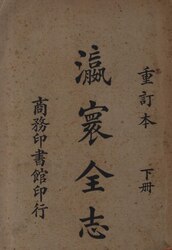 重訂本 下冊
瀛寰全志
商務印書館印行